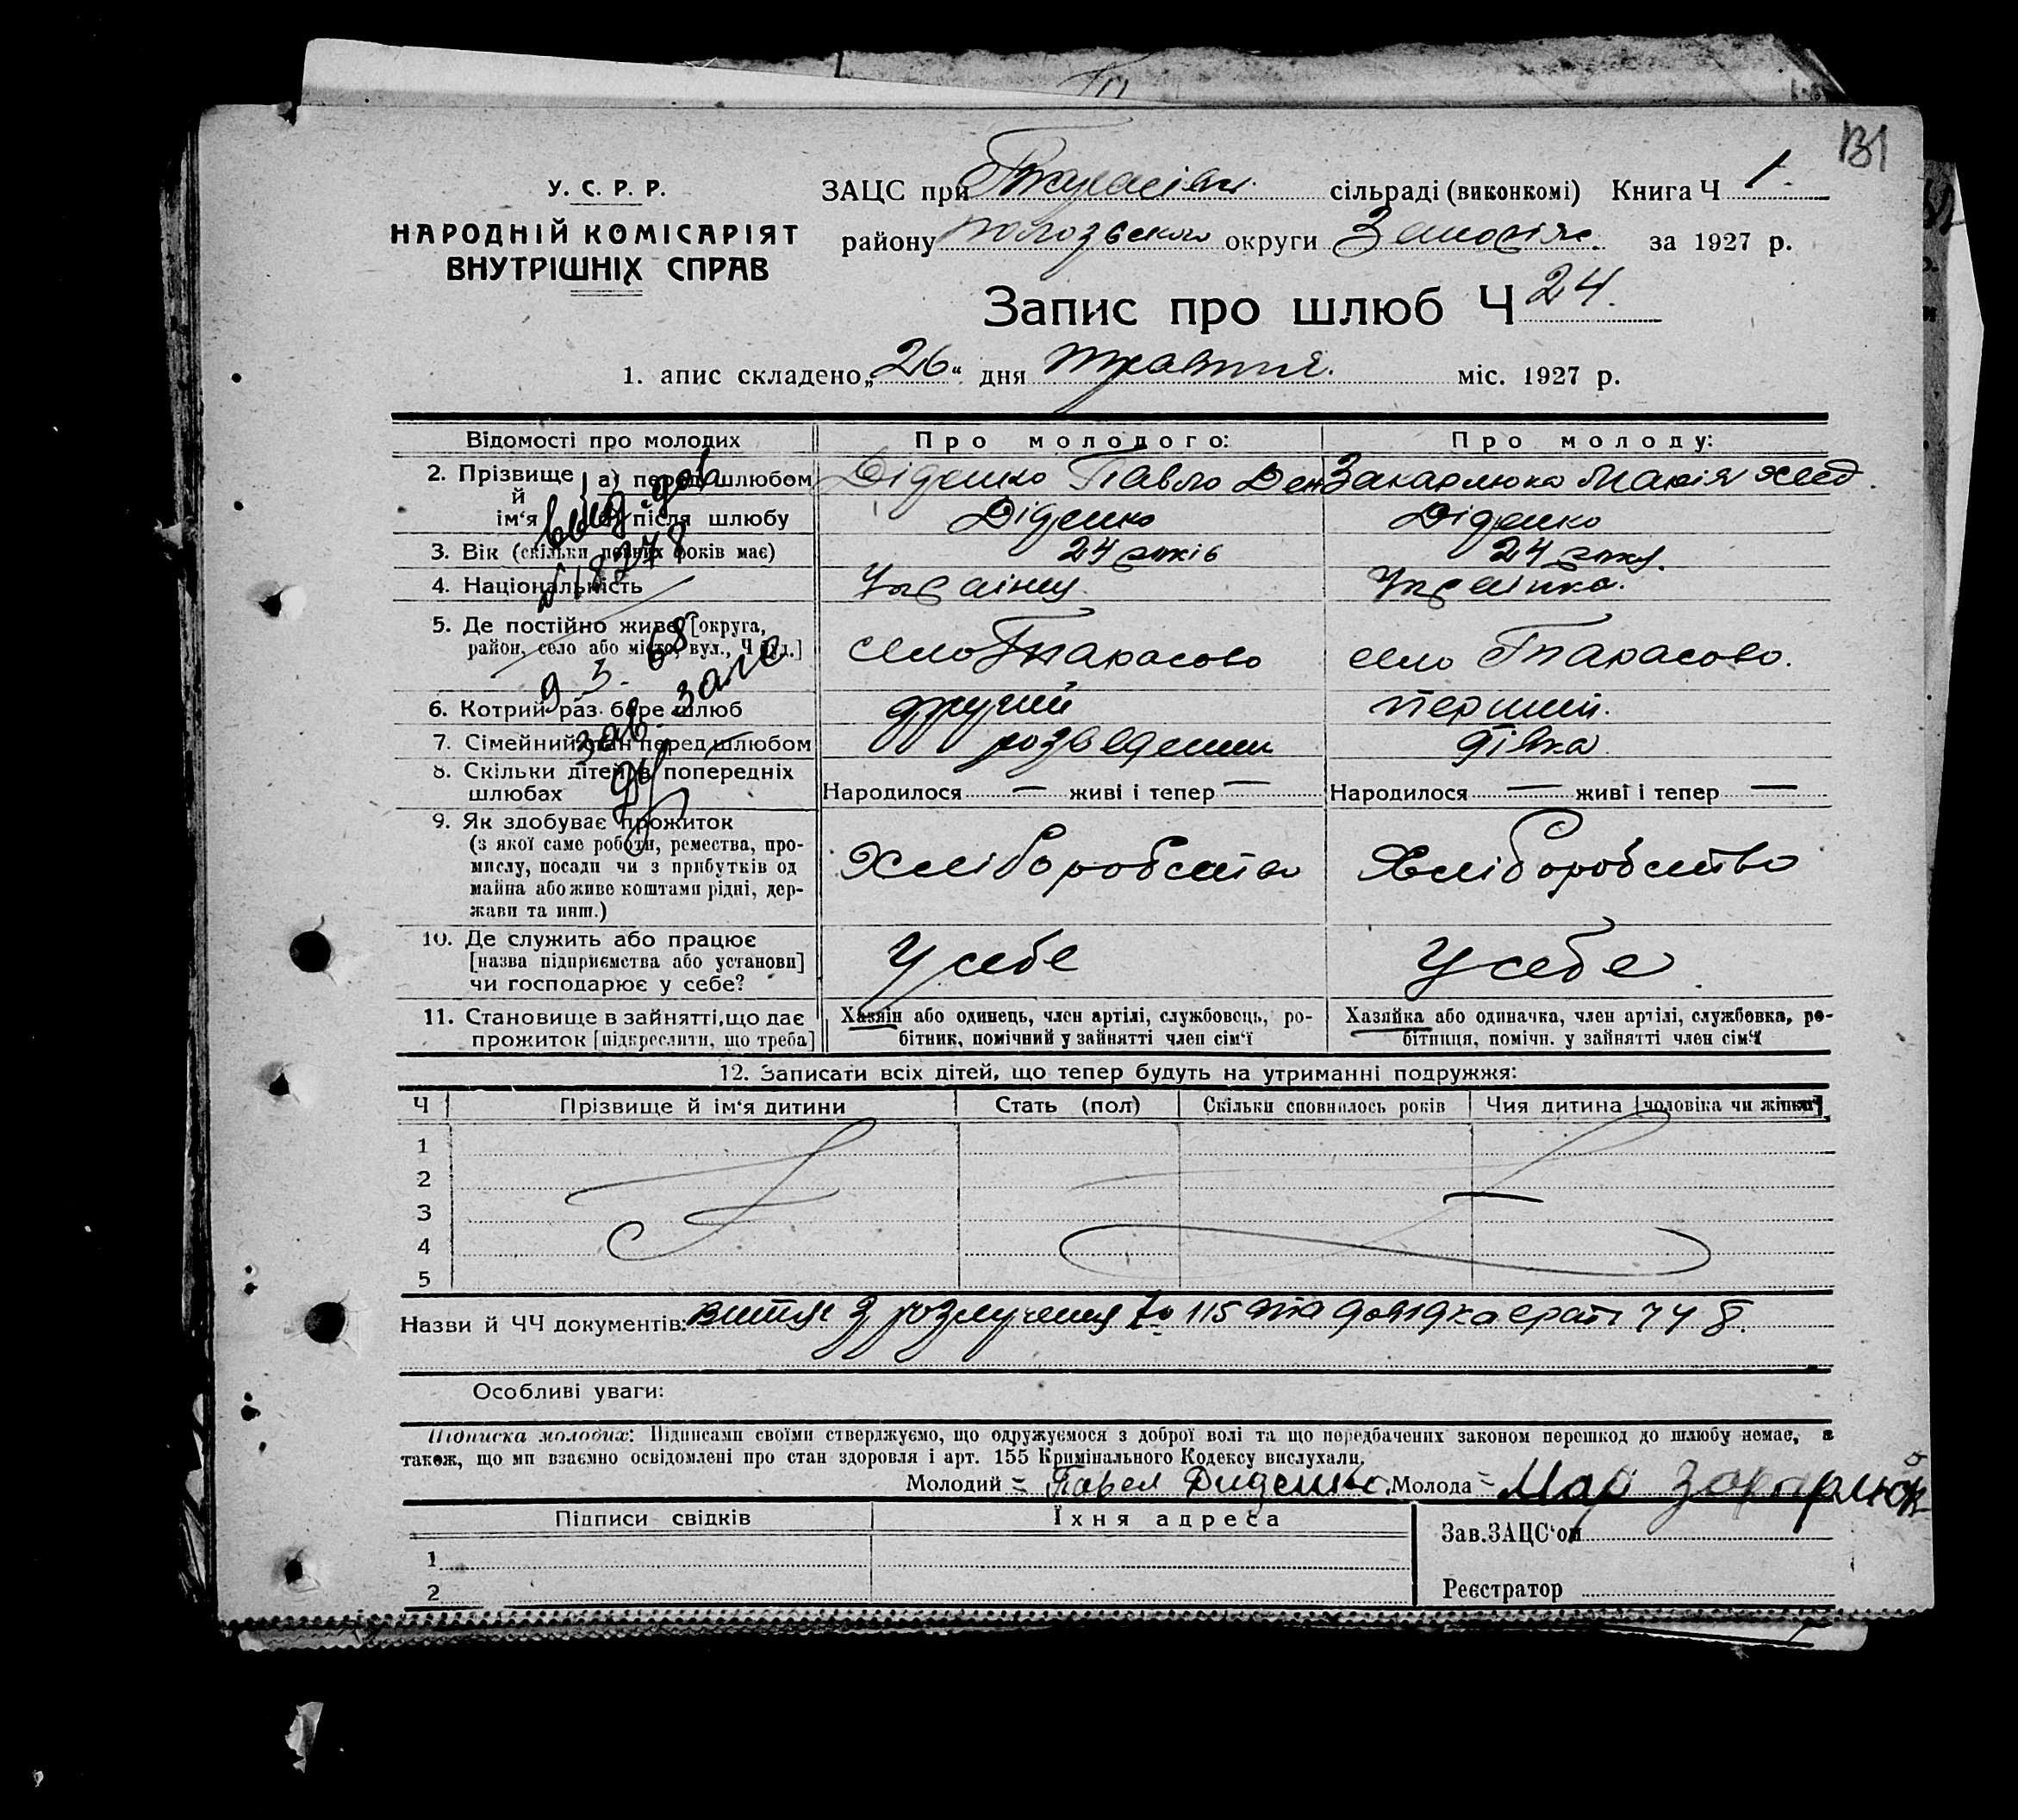 131
У. С. Р. Р.
НАРОДНІЙ КОМІСАРІЯТ
ВНУТРІШНІХ СПРАВ
ЗАЦС при Тарасівк. сільраді (виконкомі) Книга Ч 1.
району округи Запоріж. за 1927 р.
Запис про шлюб Ч 24.
1. апис складено „26“ дня травня. міс. 1927 р.
Відомості про молодих
Про молодого:
Про молоду:
2. Прізвище й ім‘я а) перед шлюбом
Діденко Павло Ден
Закарлюка Марія Хвед.
після шлюбу
Діденко
Діденко
3. Вік (скільки повних років має)
24 років
24 роки.
4. Національність
Українц
Українка.
5. Де постійно живе [округа,
район, село або місто, вул., Ч буд.]
село Тарасово
село Тарасово.
6. Котрий раз бере шлюб
другий
перший.
7. Сімейний стан перед шлюбом
розведений
дівка
8. Скільки дітей в попередніх
шлюбах
Народилося — живі і тепер —
Народилося — живі і тепер —
9. Як здобуває прожиток
(з якої саме роботи, ремества, про-
мислу, посади чи з прибутків од
майна або живе коштами рідні, дер-
жави та инш.)
Хліборобство
Хліборобство
10. Де служить або працює
[назва підприємства або установи]
чи господарює у себе?
У себе
У себе
11. Становище в зайнятті, що дає
прожиток [підкреслити, що треба]
Хазяїн або одинець, член артілі, службовець, ро-
бітник, помічний у зайнятті член сім‘ї
Хазяйка або одиначка, член артілі, службовка, ро-
бітниця, помічн. у зайнятті член сім‘ї
вид. дов
№ 18278
9 3. 68
зав. загс
12. Записати всіх дітей, що тепер будуть на утриманні подружжя:
Ч
Прізвище й ім‘я дитини
Стать (пол)
Скільки сповнилось років
Чия дитина [чоловіка чи жінки]
1
2
3
4
5
Назви й ЧЧ документів: витяг з розлучення № 115 та довідка 748.
Особливі уваги:
Підписка молодих: Підписами своїми стверджуємо, що одружуємося з доброї волі та що передбачених законом перешкод до шлюбу немає, а
також, що ми взаємно освідомлені про стан здоровля і арт. 155 Кримінального Кодексу вислухали.
Молодий - Павел Диденко. Молода - Мар Закарлюк
Підписи свідків
Їхня адреса
Зав. ЗАЦС‘ом
1
2
Реєстратор